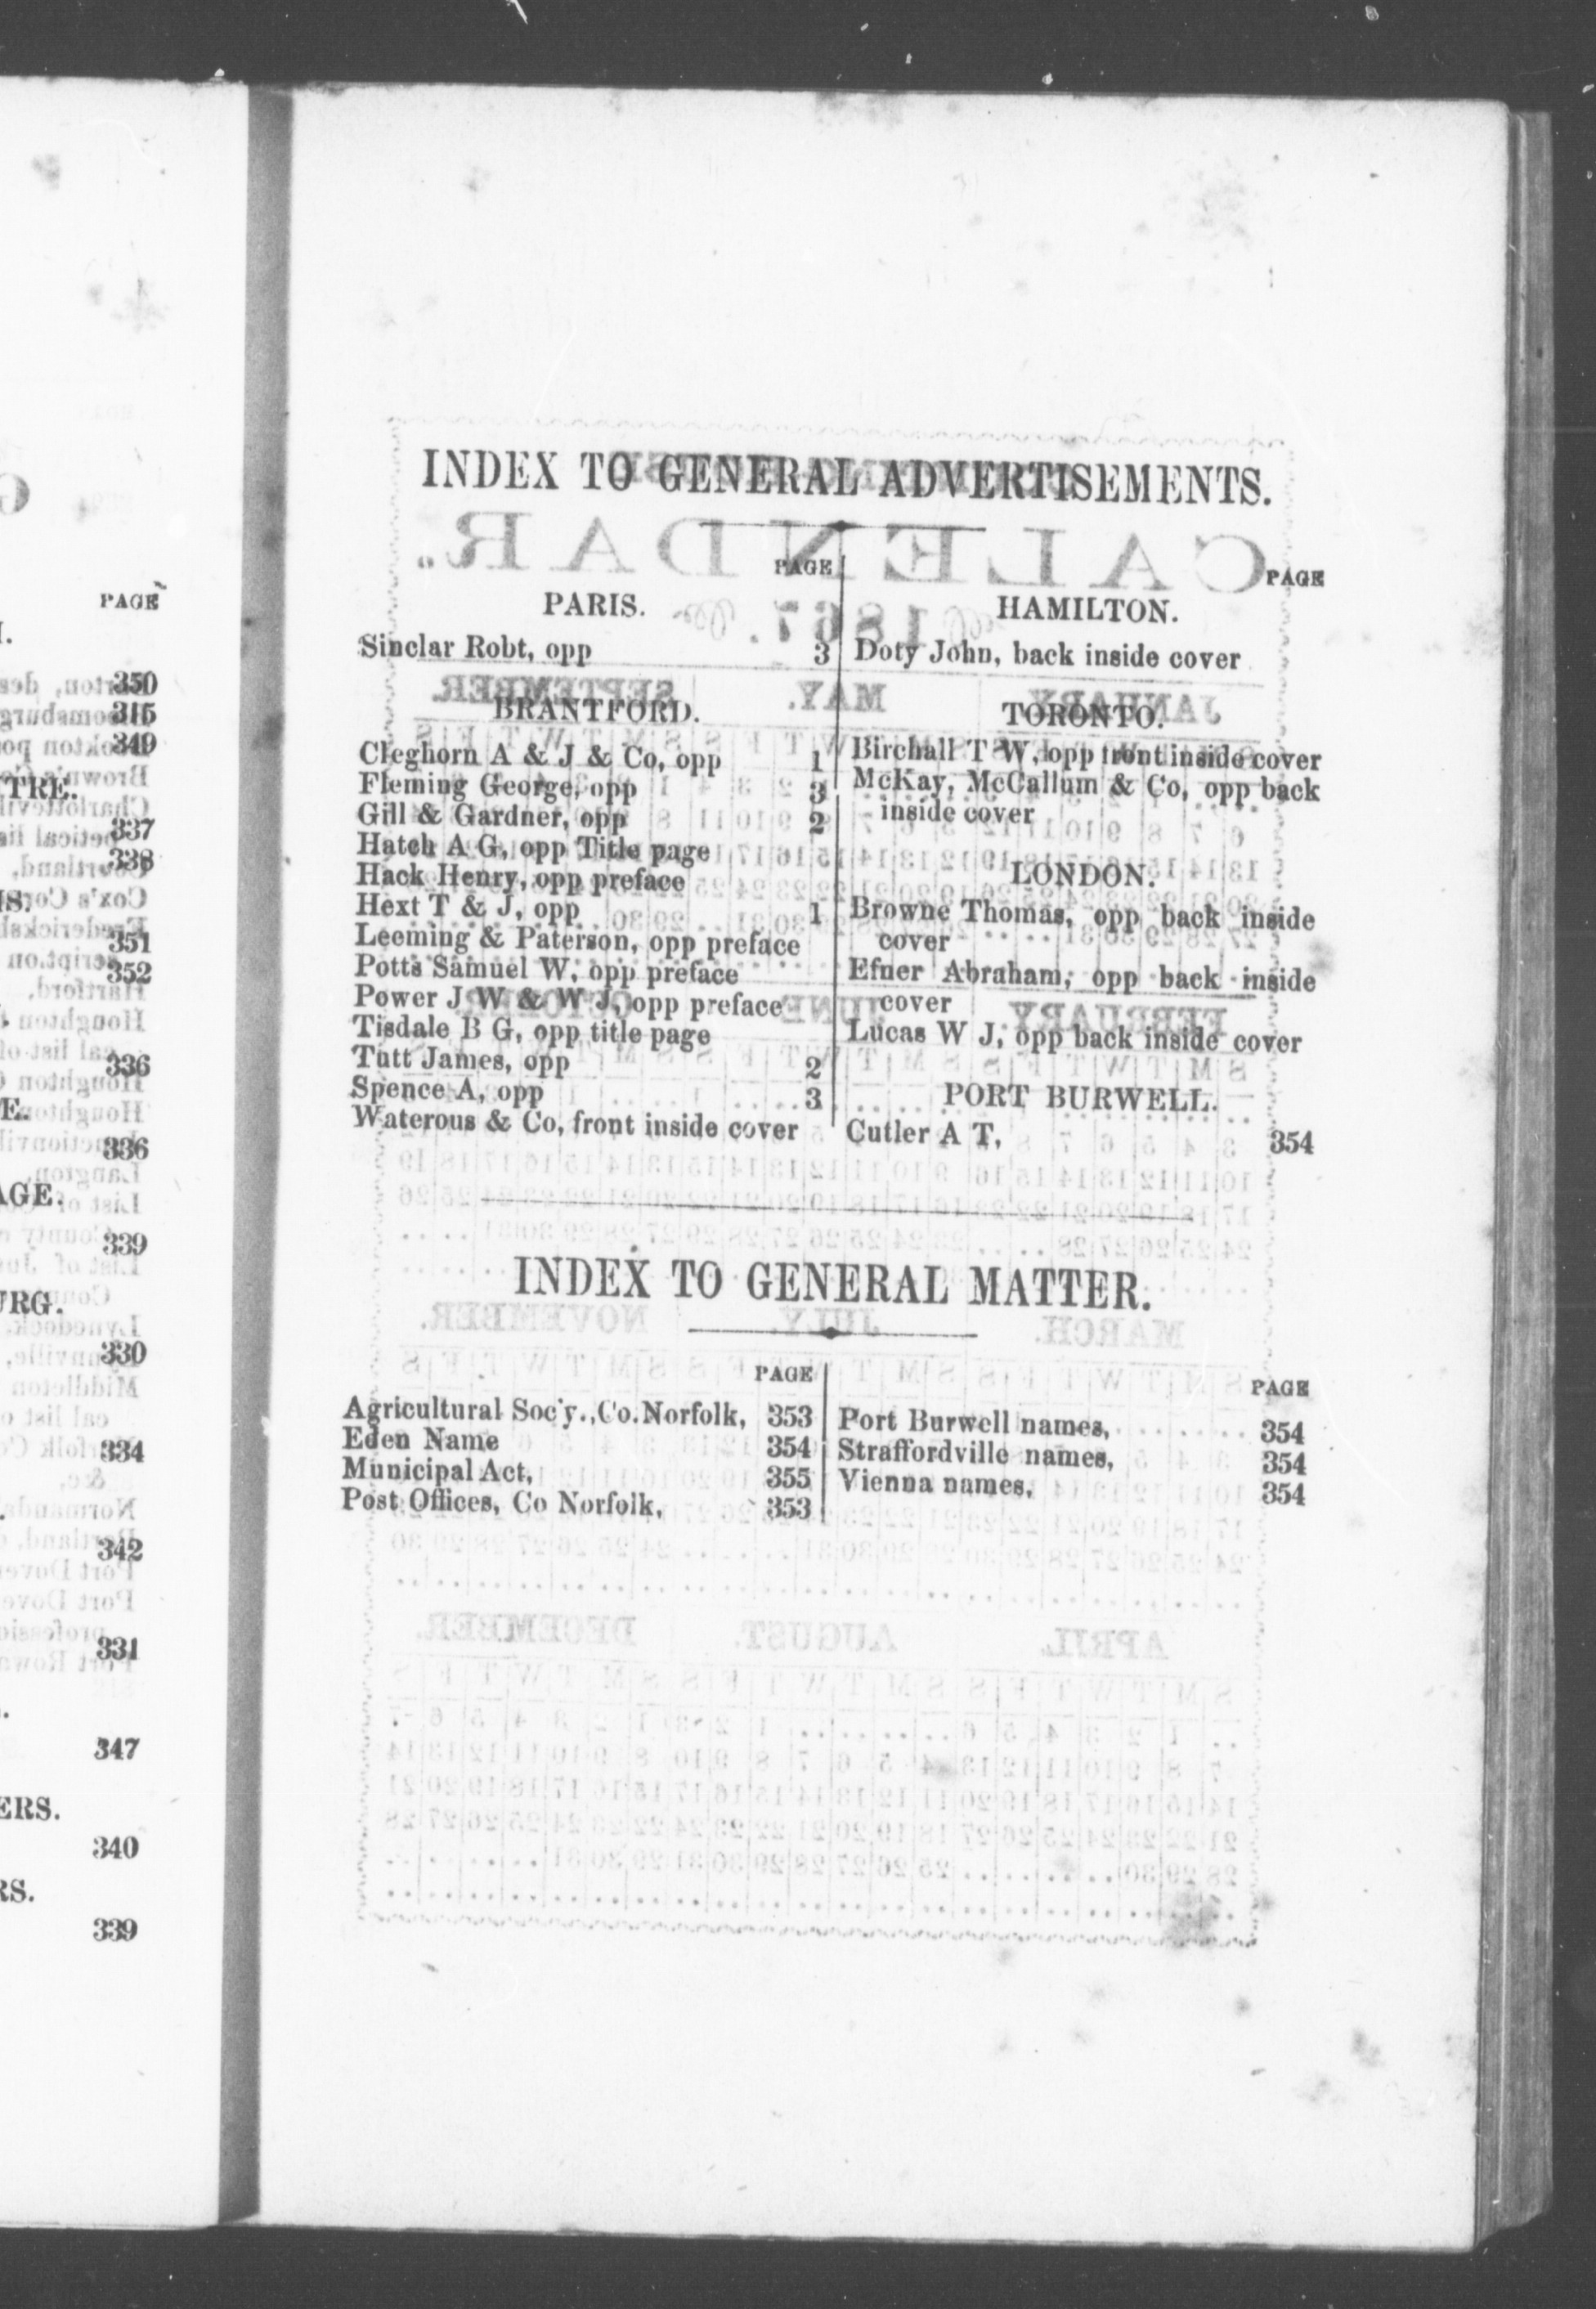 PAGE
350
315
349
TRE.
337
338
351
352
336
E.
336
AGE.
339
URG.
330
334
342
331
347
ERS.
340
RS.
339
INDEX TO GENERAL ADVERTISEMENTS.
PAGE
PARIS.
Sinclar Robt, opp 3
BRANTFORD.
Cleghorn A & J & Co, opp 1
Fleming George, opp 3
Gill & Gardner, opp 2
Hatch A G, opp Title page
Hack Henry, opp preface
Hext T & J, opp 1
Leeming & Paterson, opp preface
Potts Samuel W, opp preface
Power J W & W J, opp preface
Tisdale B G, opp title page
Tutt James, opp 2
Spence A, opp 3
Waterous & Co, front inside cover
PAGE
HAMILTON.
Doty John, back inside cover
TORONTO.
Birchall T W, opp front inside cover
McKay, McCallum & Co, opp back
inside cover
LONDON.
Browne Thomas, opp back inside
cover
Efner Abraham, opp back inside
cover
Lucas W J, opp back inside cover
PORT BURWELL.
Cutler A T, 354
INDEX TO GENERAL MATTER.
PAGE
Agricultural Soc'y., Co. Norfolk, 353
Eden Name 354
Municipal Act, 355
Post Offices, Co Norfolk, 353
PAGE
Port Burwell names, 354
Straffordville names, 354
Vienna names, 354